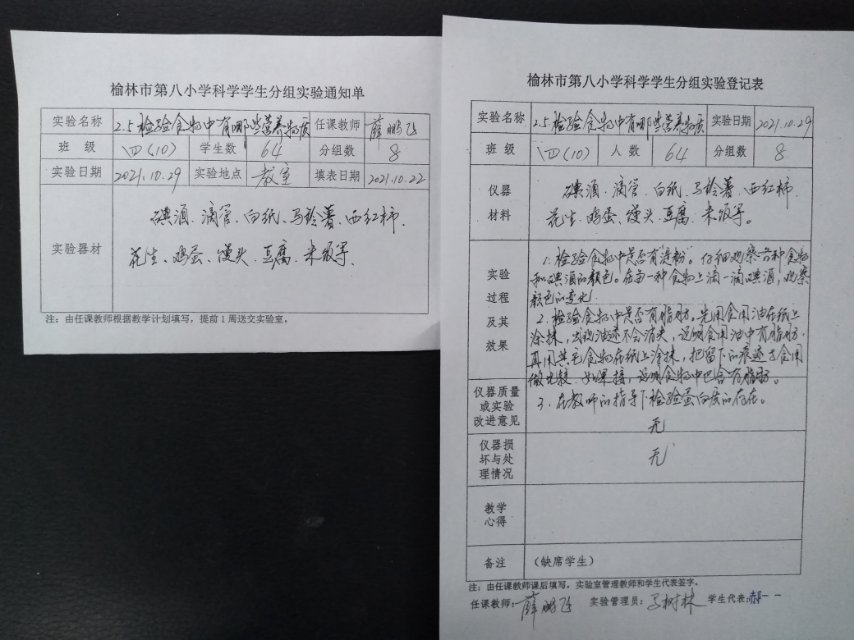 榆林市第八小学科学学生分组实验通知单
实验名称 2.5检验食物中有哪些营养物质 任课教师 薛鹏飞
班 级 四(10) 学生数 64 分组数 8
实验日期 2021.10.29 实验地点 教室 填表日期 2021.10.22
实验器材
碘酒、滴管、白纸、马铃薯、西红柿、
花生、鸡蛋、馒头、豆腐、米饭等、
注:由任课教师根据教学计划填写,提前1周送交实验室。
榆林市第八小学科学学生分组实验登记表
实验名称 2.5检验食物中有哪些营养物质 实验日期 2021.10.29
班 级 四(10) 人 数 64 分组数 8
仪器
材料
碘酒、滴管、白纸、马铃薯、西红柿、
花生、鸡蛋、馒头、豆腐、米饭等。
实验
过程
及其
效果
1.检验食物中是否有淀粉。仔细观察各种食物
和碘酒的颜色。在每一种食物上滴一滴碘酒,观察
颜色的变化.
2.检验食物中是否有脂肪。先用食用油在纸上
涂抹,油迹不会消失,说明食用油中有脂肪,
再用其它食物在纸上涂抹,把留下的痕迹与食用
做比较,如果接,说明食物中包含有脂肪。
3.在教师的指导下检验蛋白质的存在。
仪器质量
或实验
改进意见
无
仪器损
坏与处
理情况
无
教学
心得
备注 (缺席学生)
注:由任课教师课后填写,实验室管理教师和学生代表签字。
任课教师:薛鹏飞 实验管理员:树林 学生代表:郝一一